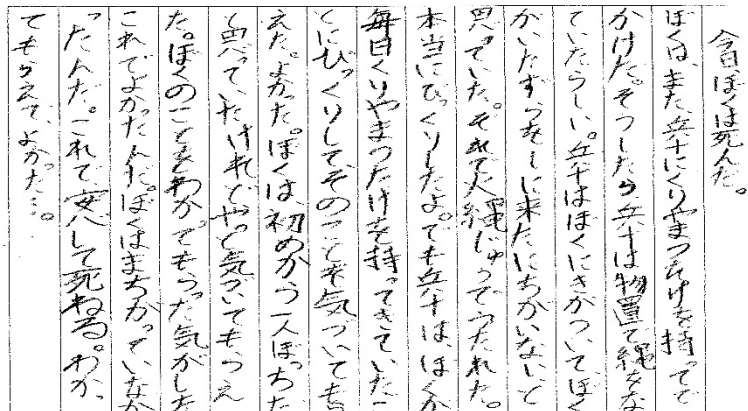 今日ぼくは死んだ。
ぼくは、また兵十にくりやまつたけを持ってで
かけた。そうしたら兵十は物置で縄をな
ていたらしい。兵十はぼくにきがついてぼく
がいたずらをしに来たにちがいないと
思っていた。それで火縄じゅうでうたれた。
本当にびっくりしたよ。でも兵十は、ぼくが
毎日くりやまつたけを持ってきていたこ
とにびっくりしてそのことを気づいてもら
えた。よかった。ぼくは、初めから一人ぼっちだ
と思っていたけれどやっと気づいてもらえ
た。ぼくのことをわかってもらった気がした
これでよかったんだ。ぼくはまちがっていなか
ったんだ。これで安心して死ねる。わかっ
てもらえて、よかった…。